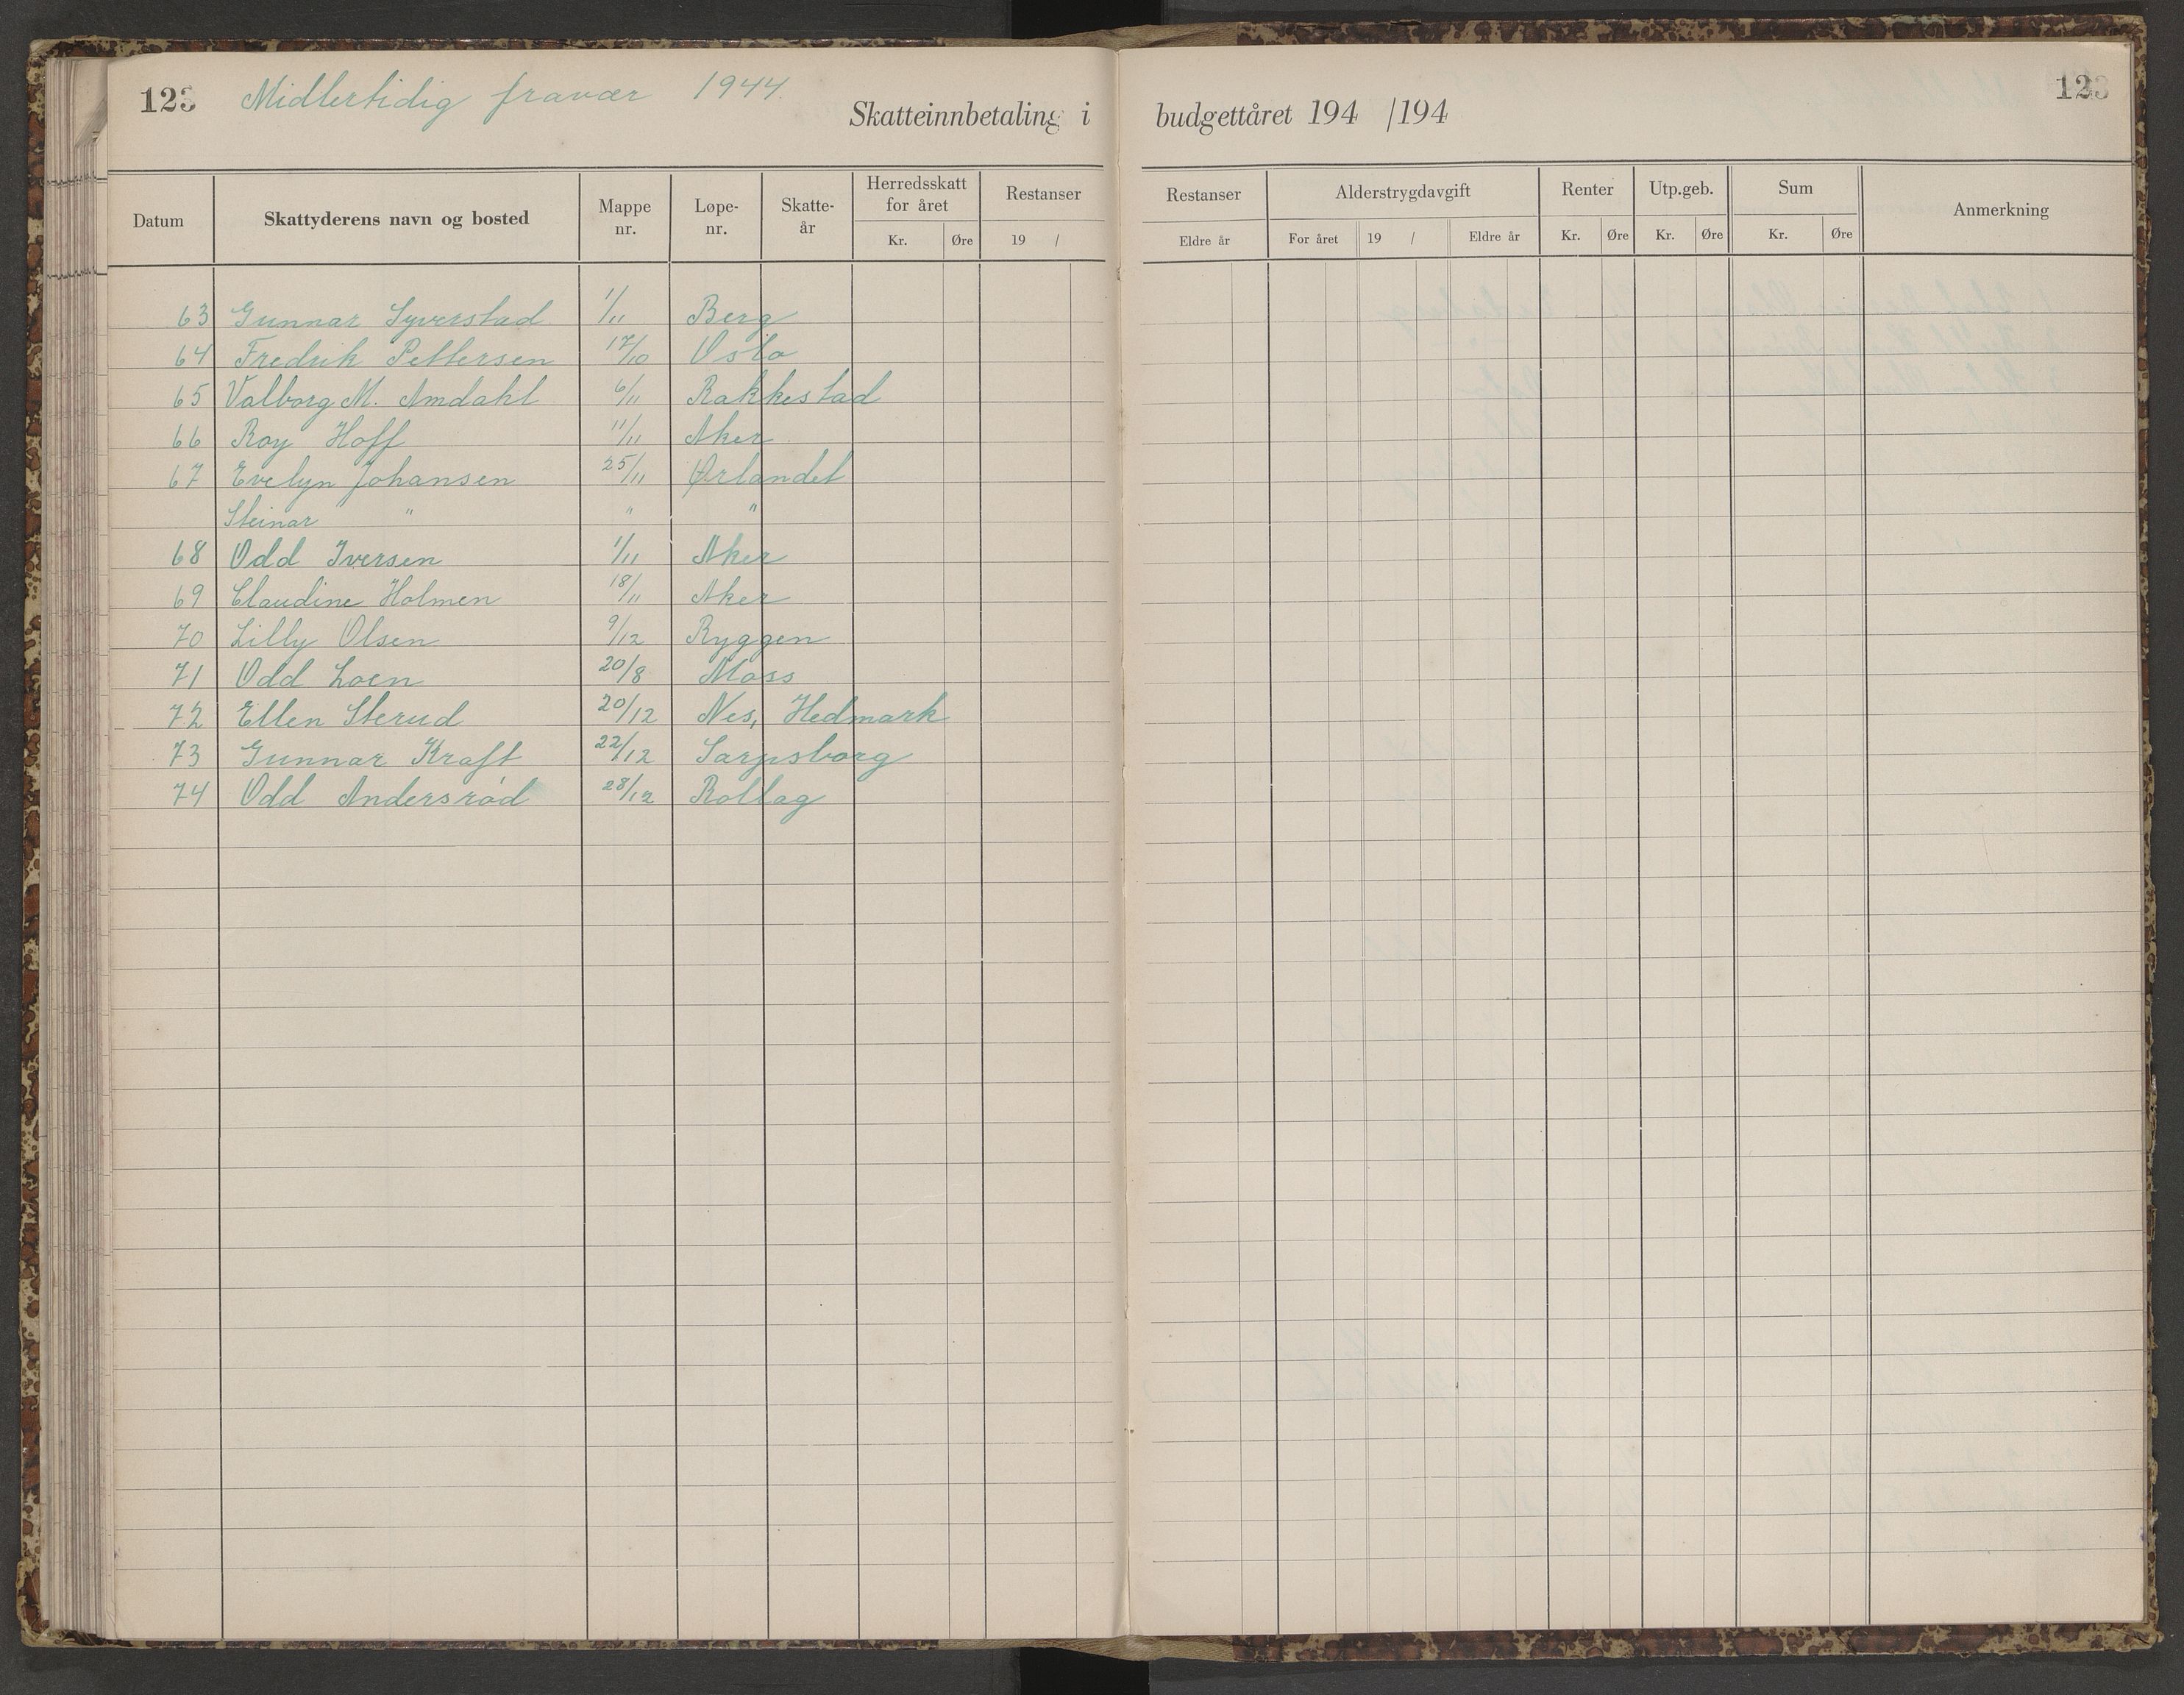 123 Midlertidig fravær 1944.
Skatteinnbetaling i budgettåret 194 /194
123
Datum Skattyderens navn og bosted Mappe nr. Løpe-nr. Skatte-år Herredsskatt for året Kr. Øre Restanser 19 /
Restanser Eldre år Alderstrygdavgift For året 19 / Eldre år Renter Kr. Øre Utp.geb. Kr. Øre Sum Kr. Øre Anmerkning
63 Gunnar Syverstad 1/11 Berg
64 Fredrik Pettersen 17/10 Oslo
65 Valborg M. Amdahl 6/11 Rakkestad
66 Roy Hoff 11/11 Aker
67 Evelyn Johansen 25/11 Ørlandet
Steinar " " "
68 Odd Iversen 1/11 Aker
69 Claudine Holmen 18/11 Aker
70 Lilly Olsen 9/12 Ryggen
71 Odd Loen 20/8 Moss
72 Ellen Sterud 20/12 Nes, Hedmark
73 Gunnar Kraft 22/12 Sarpsborg
74 Odd Andersrød 28/12 Rollag